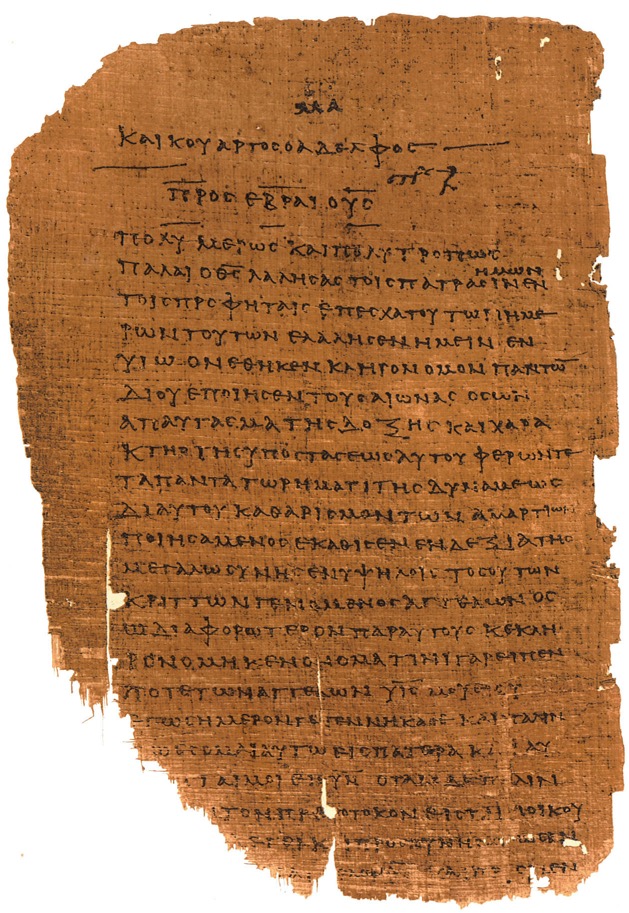 ΚΑΙΚΟΥΑΡΤΟϹΟΑΔΕΛΦΟϹ
ΠΡΟϹΕΒΡΑΙΟΥϹ
ΠΟΛΥΜΕΡΩϹΚΑΙΠΟΛΥΤΡΟΠΩϹ
ΗΜΩΝ
ΠΑΛΑΙΟΘ̅Ϲ̅ΛΑΛΗϹΑϹΤΟΙϹΠΑΤΡΑϹΙΝΕΝ
ΤΟΙϹΠΡΟΦΗΤΑΙϹΕΠΕϹΧΑΤΟΥΤΩΝΗΜΕ
ΡΩΝΤΟΥΤΩΝΕΛΑΛΗϹΕΝΗΜΕΙΝΕΝ
ΥΙΩΟΝΕΘΗΚΕΝΚΛΗΡΟΝΟΜΟΝΠΑΝΤΩ̅
ΔΙΟΥΕΠΟΙΗϹΕΝΤΟΥϹΑΙΩΝΑϹΟϹΩΝ
ΑΠΑΥΓΑϹΜΑΤΗϹΔΟΞΗϹΚΑΙΧΑΡΑ
ΚΤΗΡΤΗϹΥΠΟϹΤΑϹΕΩϹΑΥΤΟΥΦΕΡΩΝΤΕ
ΤΑΠΑΝΤΑΤΩΡΗΜΑΤΙΤΗϹΔΥΝΑΜΕΩϹ
ΔΙΑΥΤΟΥΚΑΘΑΡΙϹΜΟΝΤΩΝΑΜΑΡΤΙΩΝ
ΠΟΙΗϹΑΜΕΝΟϹΕΚΑΘΙϹΕΝΕΝΔΕΞΙΑΤΗϹ
ΜΕΓΑΛΩϹΥΝΗϹΕΝΥΨΗΛΟΙϹΤΟϹΟΥΤΩΝ
ΚΡΙΤΤΩΝΓΕΝΟΜΕΝΟϹΑΓΓΕΛΩΝΟϹ
ΩΔΙΑΦΟΡΩΤΕΡΟΝΠΑΡΑΥΤΟΥϹΚΕΚΛΗ
ΡΟΝΟΜΗΚΕΝΟΝΟΜΑΤΙΝΙΓΑΡΕΙΠΕΝ
ΠΟΤΕΤΩΝΑΓΓΕΛΩΝΥ̅Ϲ̅ΜΟΥΕΙϹΥ
ΕΓΩϹΗΜΕΡΟΝΓΕΓΕΝΝΗΚΑϹΕΚΑΙΠΑΛΙΝ
ΕϹΟΜΑΙΑΥΤΩΕΙϹΠΑΤΕΡΑΚΑΙΑΥ
ΤΑΙΜΟΙΕΙϹΥ̅Ν̅ΟΤΑΝΔΕΠΑΛΙΝ
ΤΟΝΠΡΩΤΟΤΟΚΟΝΕΙϹΤΗΝΟΙΚΟΥ